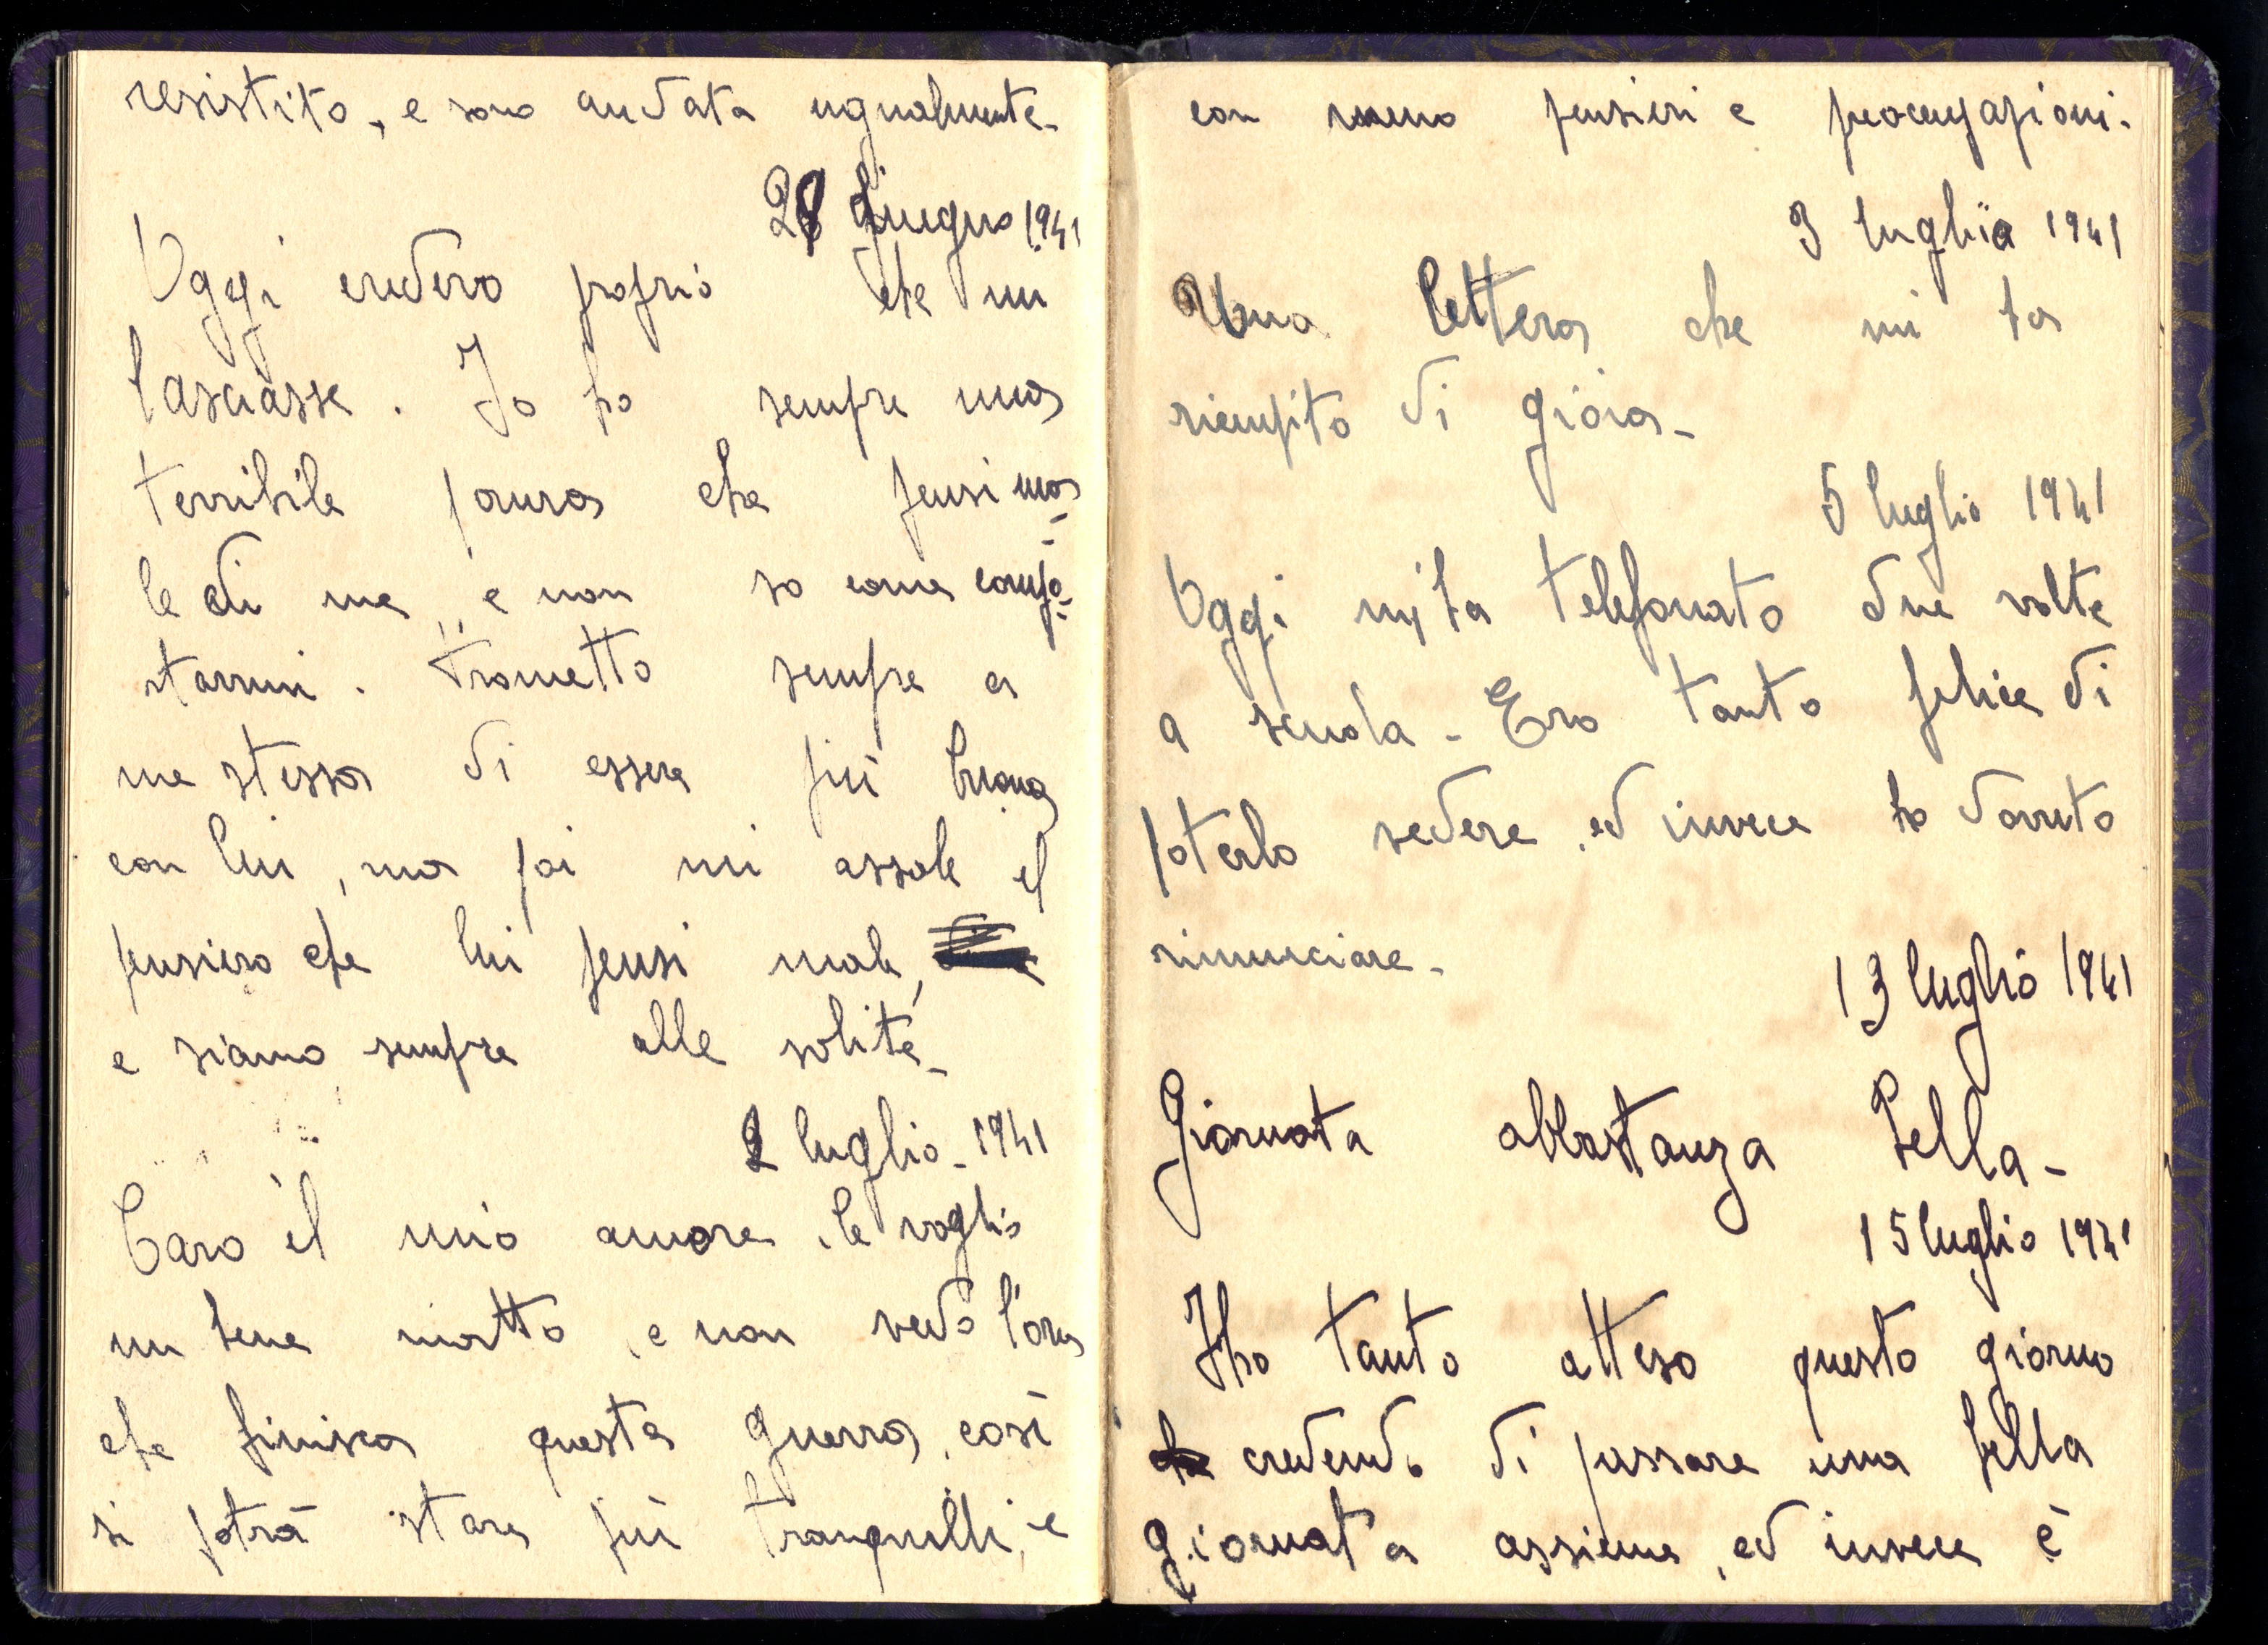 resistito, e sono andata ugualmente.
28 giugno 1941
Oggi credevo proprio che mi
lasciasse. Io ho sempre una
terribile paura che pensi ma-
le di me, e non so come compo-
starmi. Prometto sempre a
me stessa di essere più buona
con lui, ma poi mi assale il
pensiero che lui pensi male,
e siamo sempre alle solite.
2 luglio - 1941
Caro il mio amore, le voglio
un bene matto, e non vedo l'ora
che finisca questa guerra, così
si potrà stare più tranquilli, e
con meno pensieri e preocupazioni.
3 luglio 1941
Una lettera che mi ha
riempito di gioia.
5 luglio 1941
Oggi mi ha telefonato due volte
a scuola. Ero tanto felice di
poterlo vedere, ed invece ho dovuto
rinunciare.
13 luglio 1941
Giornata abbastanza bella.
15 luglio 1941
Ho tanto atteso questo giorno
credendo di passare una bella
giornata assieme, ed invece è